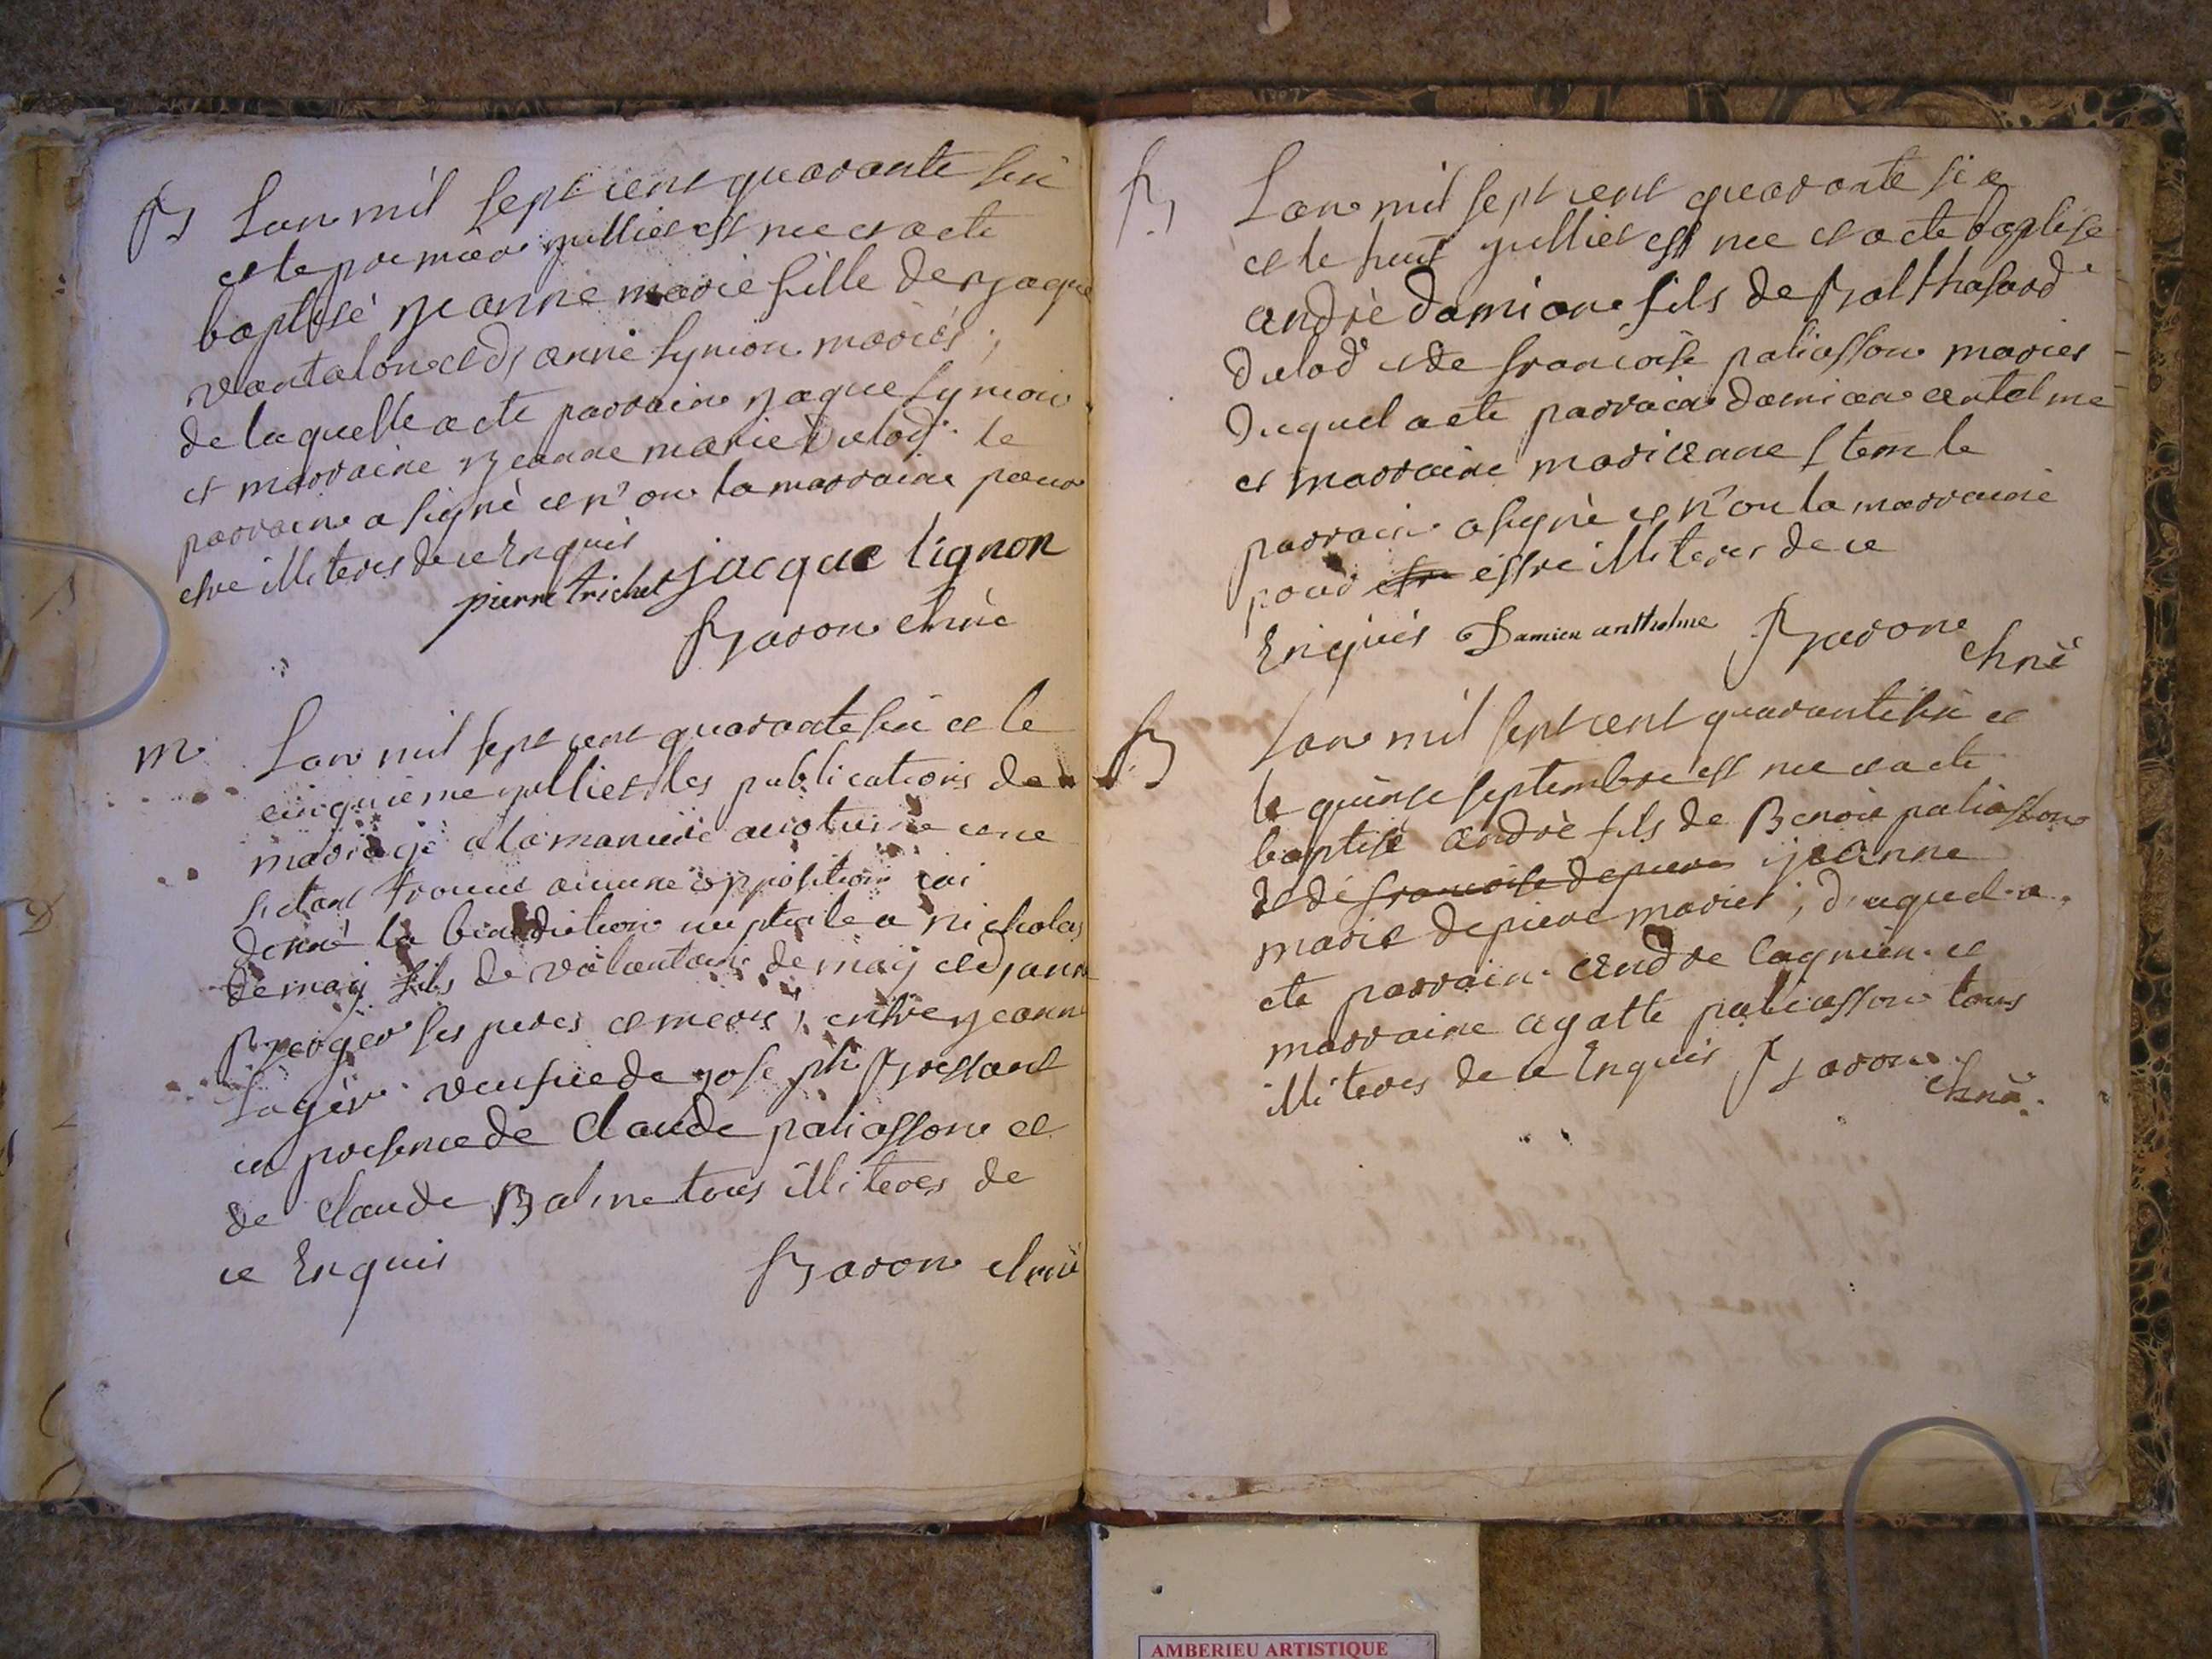 B
Lan mil sept cent quarante six
et le premier julliet est nee et a ete
baptisé jeanne marie fille de jaque
vantalon et d'anne lynion mariés;
de laquelle a ete parrain jaque lynion
et marraine jeanne marie dulod le
parrain a signè et n'on la marraine pour
estre illiteres de ce Enquis
pierre trichet jacque lignon
Baron Curè
m
Lan mil sept cent quarante six et le
cinquieme julliet les publications de
mariage a la maniere
sictant trouue aucune opposition iai
donné la benediction nuptiale a nicholas
demay fils de demay et d'anne
Berger ses peres et meres, entre jeanne
veufue de joseph Bressant
en presence de Claude paliasson et
de claude Balme tous illiteres de
ce Enquis
Baron Curè
B
Lan mil sept cent quarante six
et le huit julliet est nee et a ete baptise
andrè damian fils de Balthasard
dulod et de francoise paliasson maries
duquel a ete parrain damien antelme
et marraine marianne
parrain a signè et n'on la marraine
pour estre illiteres de ce
Enquis Damien anthelme Baron
Curè
B
Lan mil sept cent quarante six et
le quinse septembre est nee et a ete
baptise andrè fils de Benoit paliasson
et de francoise depierre jeanne
marie depiere maries, duquel a
ete parrain andre cagnien et
marraine agatte paliasson tous
illiteres de ce Enquis Baron
Curè
AMBERIEU ARTISTIQUE